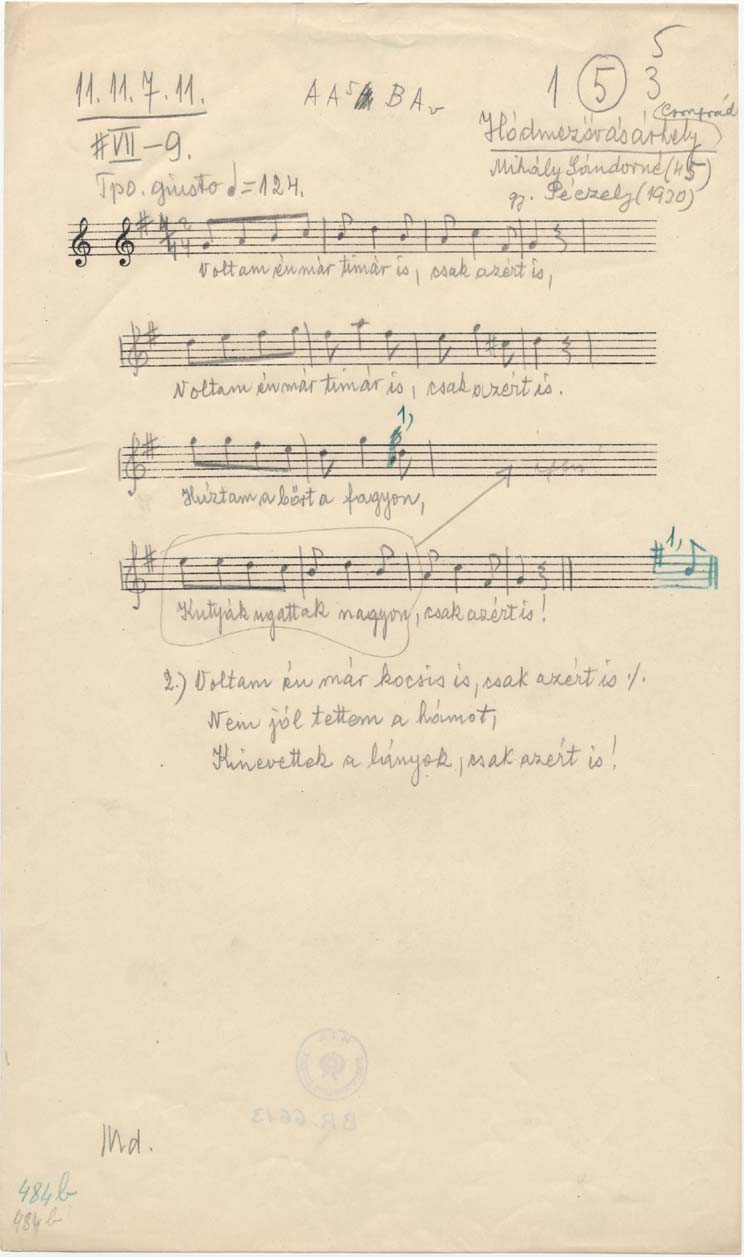 11. 11. 7. 11.
A A⁵ B Aᵥ
1 ⑤ 3
5
(Csongrád)
Hódmezővásárhely
#VII–9.
Mihály Sándorné (45)
Tpo. giusto ♩=124.
gy. Péczely (1930)
Voltam én már timár is, csak azért is,
Voltam én már timár is, csak azért is.
1,
Húztam a bőrt a fagyon,
1,
Kutyák ugattak nagyon, csak azért is!
2.) Voltam én már kocsis is, csak azért is ./.
Nem jól tettem a hámot,
Kinevettek a lányok, csak azért is!
BR 6613
Md.
484b
484b